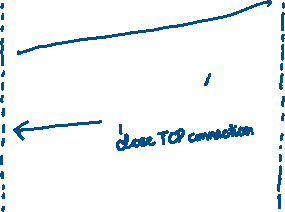 close TCP connection